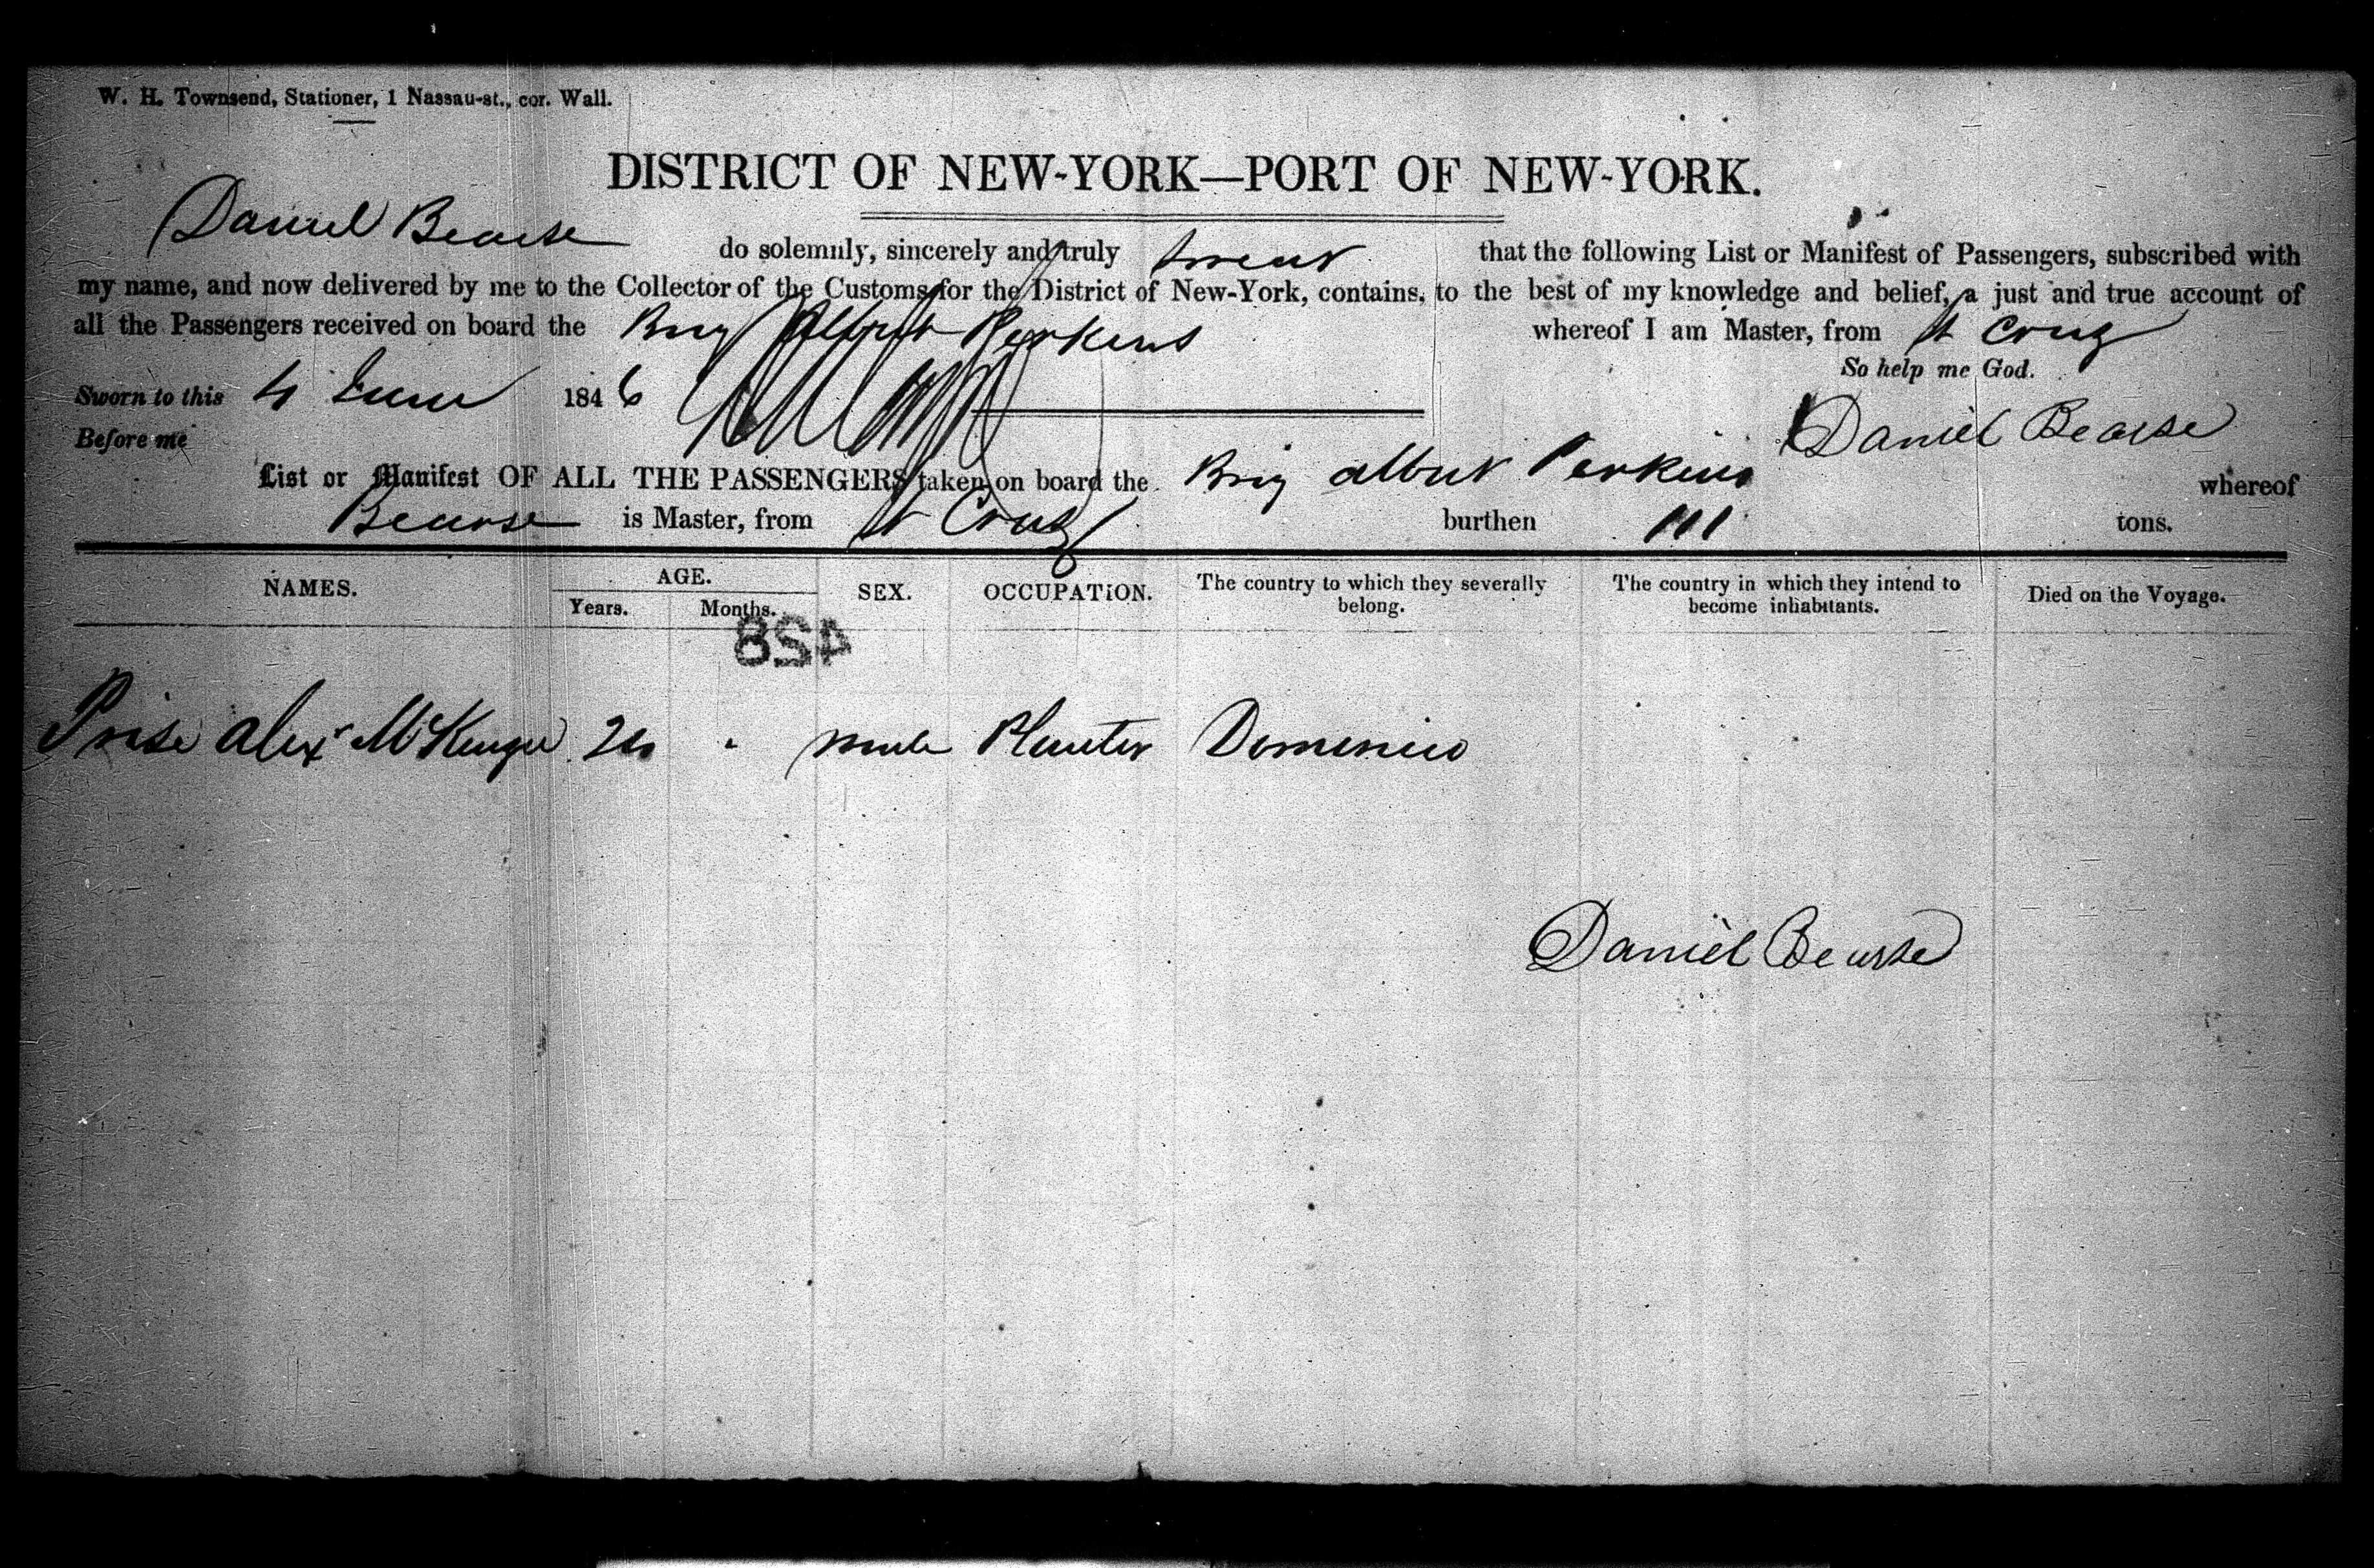 W. H. Townsend, Stationer, 1 Nassau-st., cor. Wall.
DISTRICT OF NEW-YORK—PORT OF NEW-YORK.
Daniel Bearse do solemnly, sincerely and truly swear that the following List or Manifest of Passengers, subscribed with
my name, and now delivered by me to the Collector of the Customs for the District of New-York, contains, to the best of my knowledge and belief, a just and true account of
all the Passengers received on board the Brig Albert Perkins whereof I am Master, from St Cruz
So help me God.
Sworn to this 4 June 1846
Daniel Bearse
Before me
List or Manifest OF ALL THE PASSENGERS taken on board the Brig Albert Perkins whereof
Bearse is Master, from St Cruz burthen 111 tons.
NAMES. AGE. SEX. OCCUPATION. The country to which they severally belong. The country in which they intend to become inhabitants. Died on the Voyage.
Years. Months.
428
Alexr McKenzie male Planter Dominico
Daniel Bearse